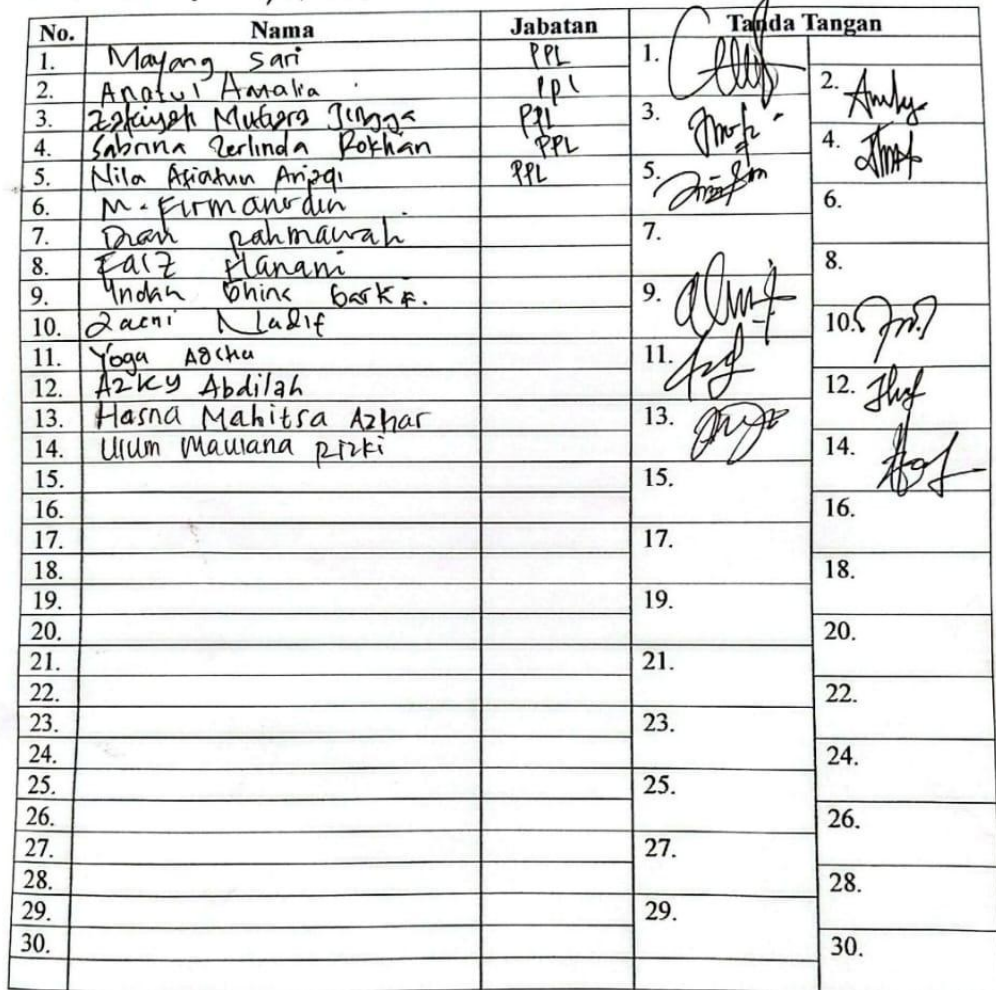 No. Nama Jabatan Tanda Tangan
1. Mayang Sari PPL 1.
2. Anatul Amalia PPL 2.
3. Mutiara Jingga PPL 3.
4. Sabrina Zerlinda Rokhan PPL 4.
5. Nila PPL 5.
6. M. Firmanudin 6.
7. Dian Rahmawah 7.
8. Faiz Hanani 8.
9. Indah 9.
10. Zaeni Nadif 10.
11. Yoga 11.
12. Azky Abdilah 12.
13. Hasna Mahitsa Azhar 13.
14. Ulum Maulana Rizki 14.
15. 15.
16. 16.
17. 17.
18. 18.
19. 19.
20. 20.
21. 21.
22. 22.
23. 23.
24. 24.
25. 25.
26. 26.
27. 27.
28. 28.
29. 29.
30. 30.